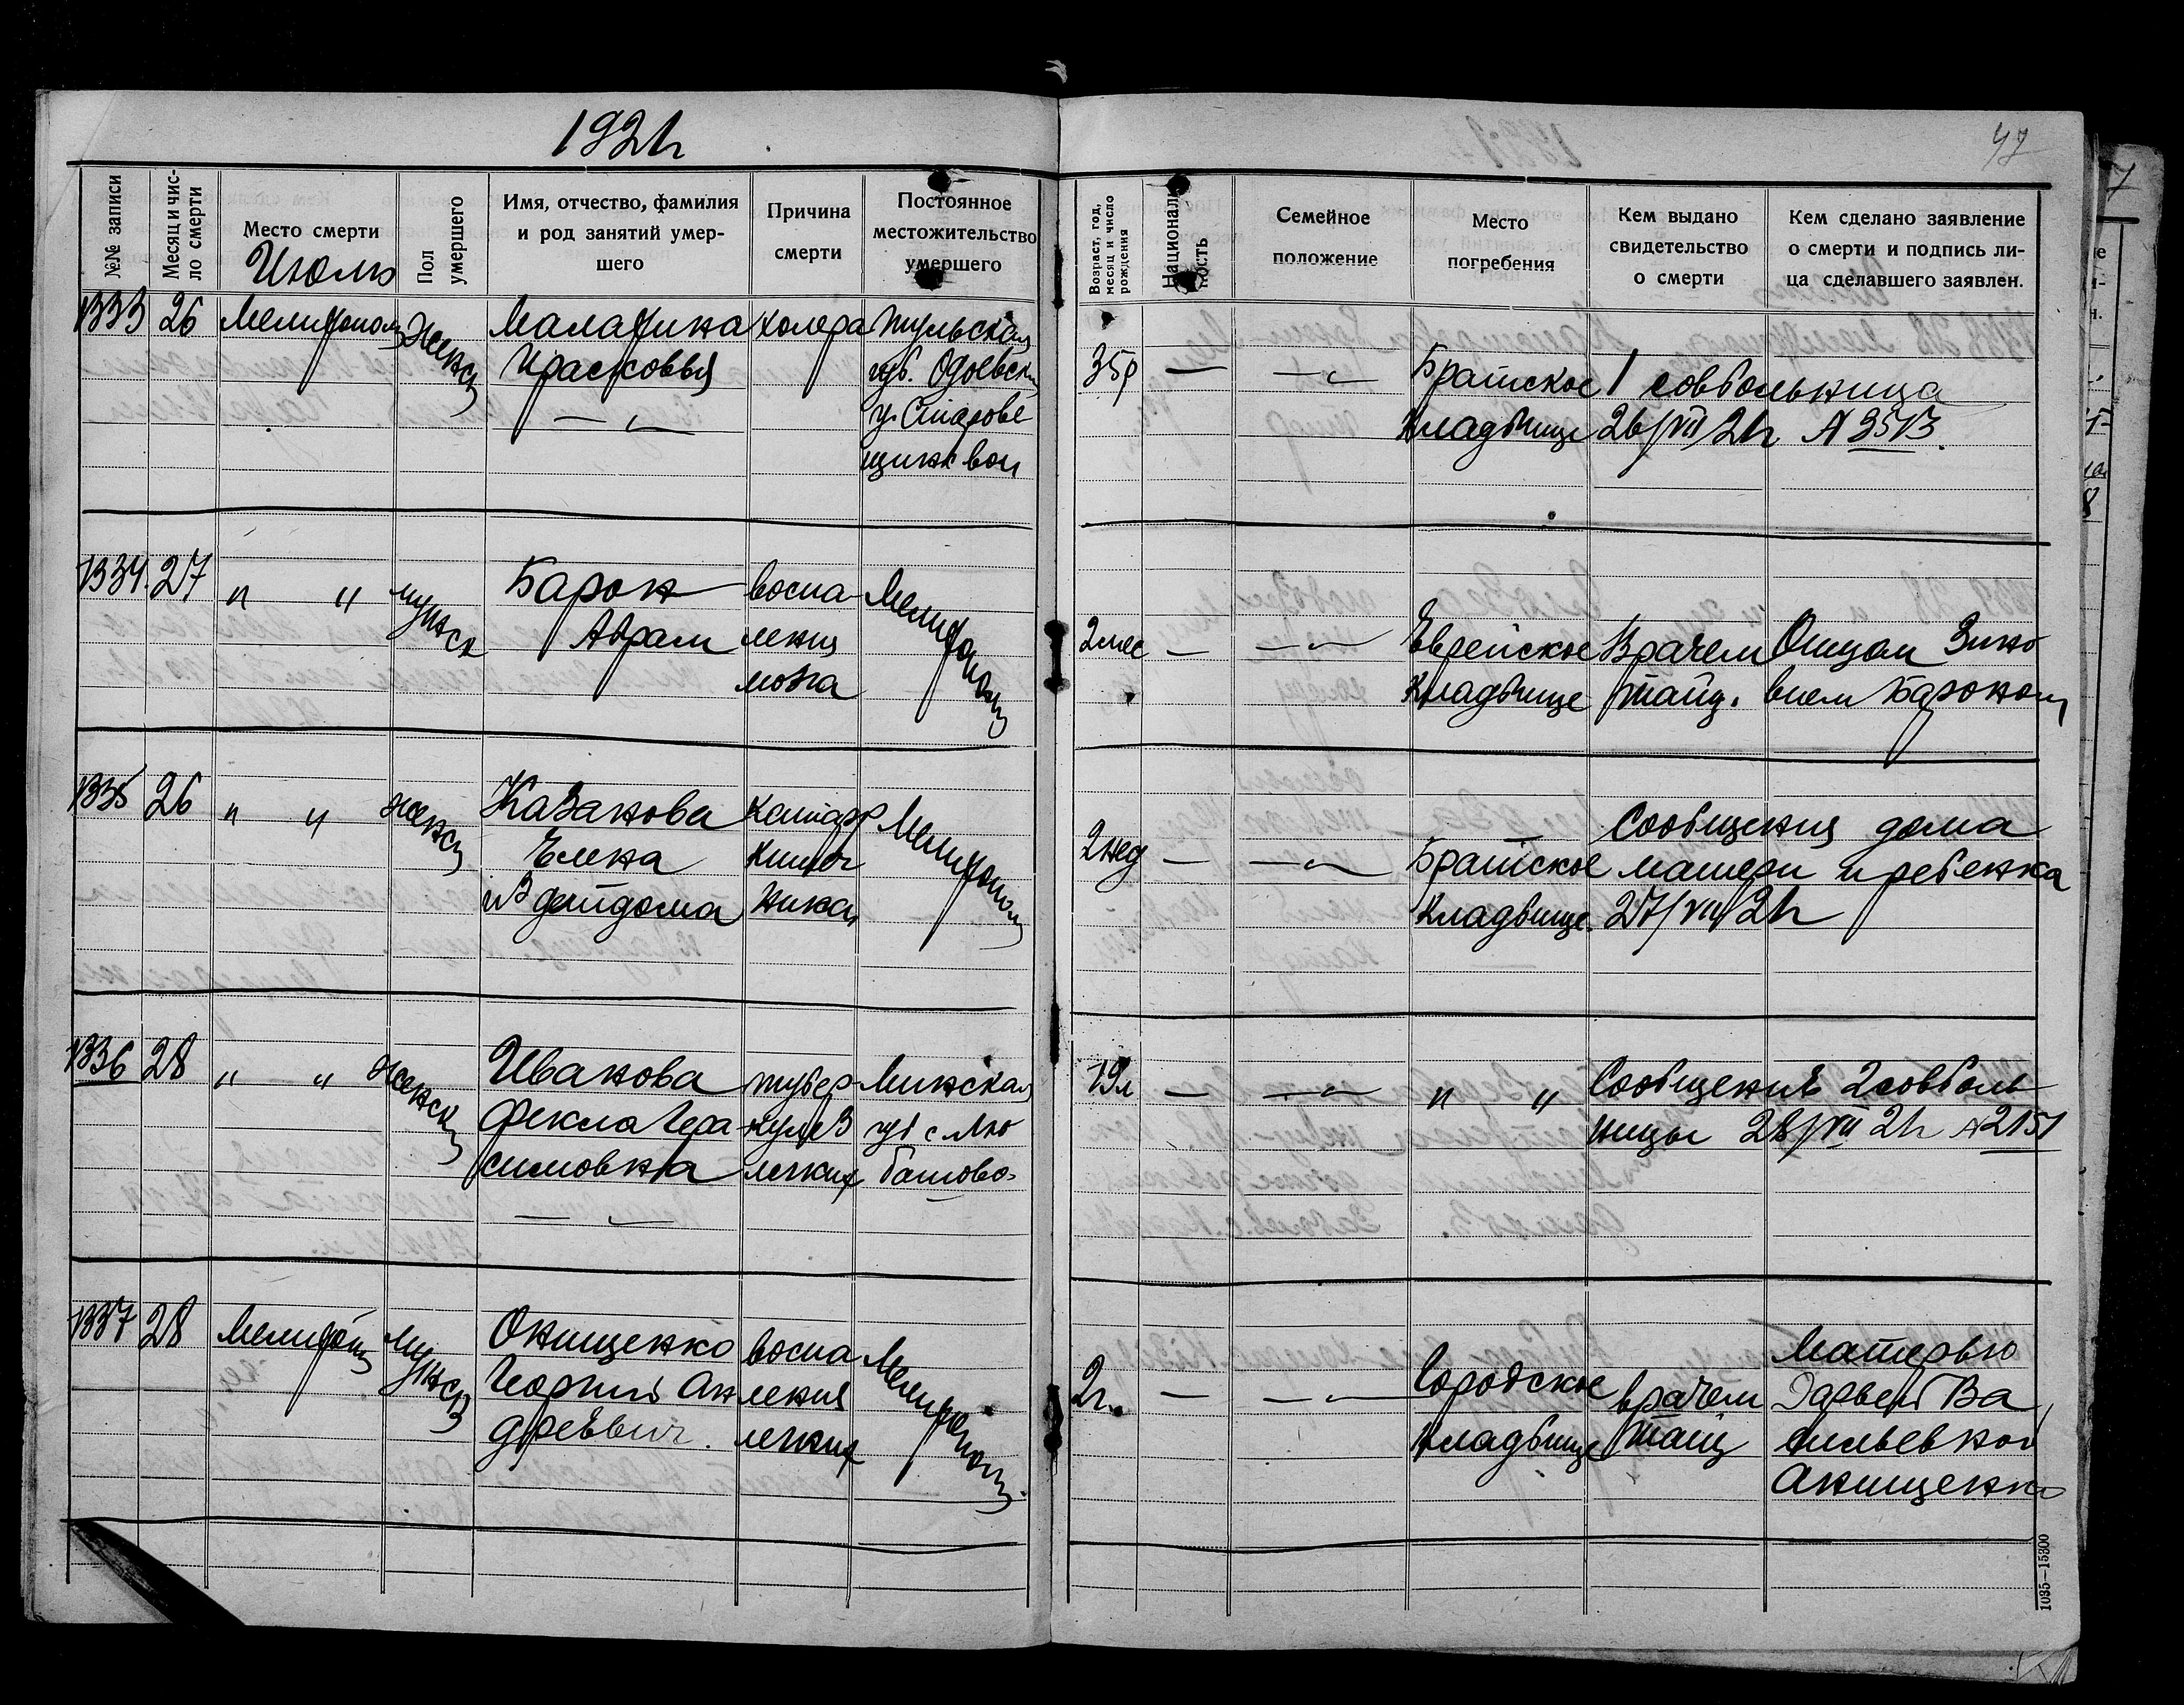 192г
47
№№ записи
Месяц и чис-
ло смерти
Место смерти
Июль
Пол
умершего
Имя, отчество, фамилия
и род занятий умер-
шего
Причина
смерти
Постоянное
местожительство
умершего
Возраст, год,
месяц и число
рождения
Националь-
ность
Семейное
положение
Место
погребения
Кем выдано
свидетельство
о смерти
Кем сделано заявление
о смерти и подпись ли-
ца сделавшего заявлен.
1333 26 Мелитополь женск
Малафина
Прасковья
— „ —
холера
Тульская
губ. Одоевск
у. Старове
35 г — — „ —
Братское
Кладбище
1 совбольница
26/VII 2 г
1334. 27 " " мужск
Барон
Абрам
воспа
ления
мозга
Мелитополь
2 мес — — „ —
Еврейское
кладбище
Врачем
Отцом Зино
вием Бароном
1335 26 " " женск
Казакова
Елена
из детдома
катарр
кишеч
ника
Мелитополь
2 нед — — „ —
Братское
Кладбище.
Сообщения дома
матери и ребенка
27/VII 2 г
1336 28 " " женск
Иванова
Фекла Гера
симовна
— „ —
тубер
кулез
легких
Минская
губ с Лю
батово-
19 л — — „ — " "
Сообщение 2 совболь
ницы 28/VII 2 г № 2151
1337 28 Мелитополь мужск
Онищенко
Георгий Ан
дреевич.
воспа
ления
легких
Мелитополь.
2 г. — — „ —
Городское
Кладбище
врачем
Матерью
Дарьей Ва
сильевной
Анищенко
1035—15300